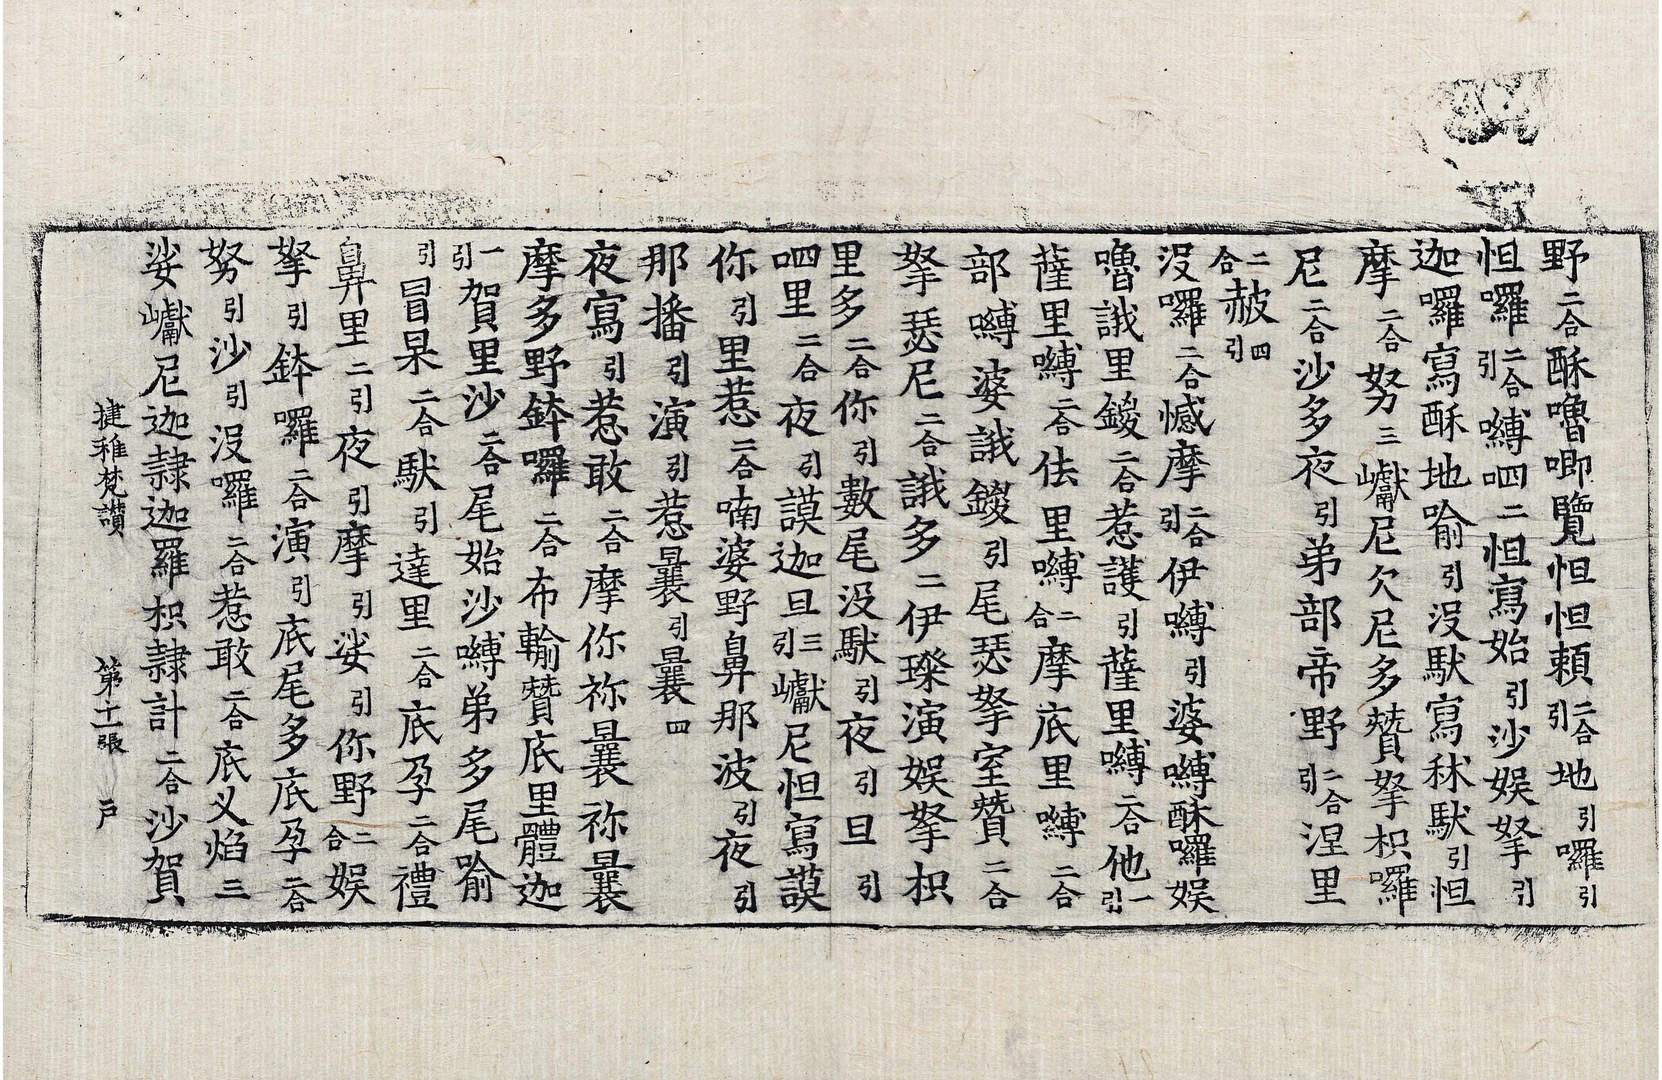 野二合酥嚕唧覽怛怛頼二合引地引囉引
怛囉二合引嚩呬二怛寫始引沙娛拏引
迦囉寫酥地喻引沒馱寫秫馱引怛
摩二合努三巘尼欠尼多贊拏枳囉
尼二合沙多夜引弟部帝野二合引涅里
二合赦引四
沒囉二合憾摩二合引伊嚩引婆嚩酥囉娛
嚕誐里鑁二合惹護引薩里嚩二合他引一
薩里嚩二合佉里嚩二合摩底里嚩二合
部嚩婆誐鑁引尾瑟拏室贊二合
拏瑟尼二合誐多二伊璨演娛拏枳
里多二合你引數尾沒馱引夜引旦引
呬里二合夜引謨迦旦引三巘尼怛寫謨
你引里惹二合喃婆野鼻那波引夜引
那播引演引惹曩引曩四
夜寫引惹敢二合摩你祢曩祢曩
摩多野鉢囉二合布輸贊底里體迦
引一賀里沙二合尾始沙嚩弟多尾喻
引冒杲二合馱引達里二合底孕二合禮
鼻里二引夜引摩引娑引你野二合娛
拏引鉢囉二合演引底尾多底孕二合
努引沙引沒囉二合惹敢二合底乂焰三
娑巘尼迦隷迦羅枳隷計二合沙賀
揵稚梵讚　第十一張　戶